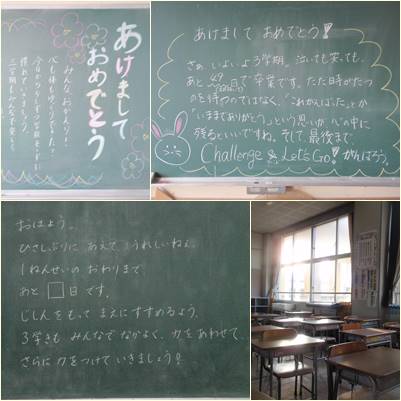 あけまして
おめでとう
みんな おかえり!
心も体もゆっくりできたかな?
三学期もみんなで楽しく
あけまして おめでとう!
さぁ、いよいよ3学期。泣いても笑っても、
あと 49日で卒業です。ただ時がたつ
のを待つのではなく、"これがんばった"とか
"いままでありがとう"という思いが心の中に
残るといいですね。そして、最後まで
Challenge & Let's Go! がんばろう。
おはよう。
ひさしぶりに あえて うれしいねぇ。
1ねんせいの おわりまで、
あと □ 日です。
じしんを もって まえに すすめるよう、
3学きも みんなで なかよく、力をあわせて、
さらに 力をつけて いきましょう!